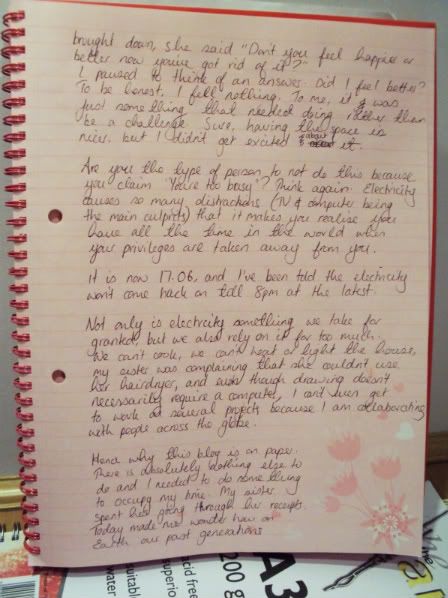 brought down, she said "Don't you feel happier or
better now you've got rid of it?"
I paused to think of an answer. Did I feel better?
To be honest, I felt nothing. To me, it was
just something that needed doing rather than
be a challenge. Sure, having the space is
nicer, but I didn't get excited about it.
Are you the type of person to not do this because
you claim "You're too busy"? Think again. Electricity
causes so many distractions (TV & computer being
the main culprits) that it makes you realise you
have all the time in the world when
your privileges are taken away from you.
It is now 17.06, and I've been told the electricity
won't come back on till 8pm at the latest.
Not only is electricity something we take for
granted, but we also rely on it far too much.
We can't cook, we can't heat or light the house,
my sister was complaining that she couldn't use
her hairdryer, and even though drawing doesn't
necessarily require a computer, I can't even get
to work on several projects because I am collaborating
with people across the globe.
Hence why this blog is on paper.
There is absolutely nothing else to
do and I needed to do something
to occupy my time. My sister
spent hers going through her receipts.
Today made me wonder how on
Earth our past generations
A3
200 g
cid free
superio
water
uitable